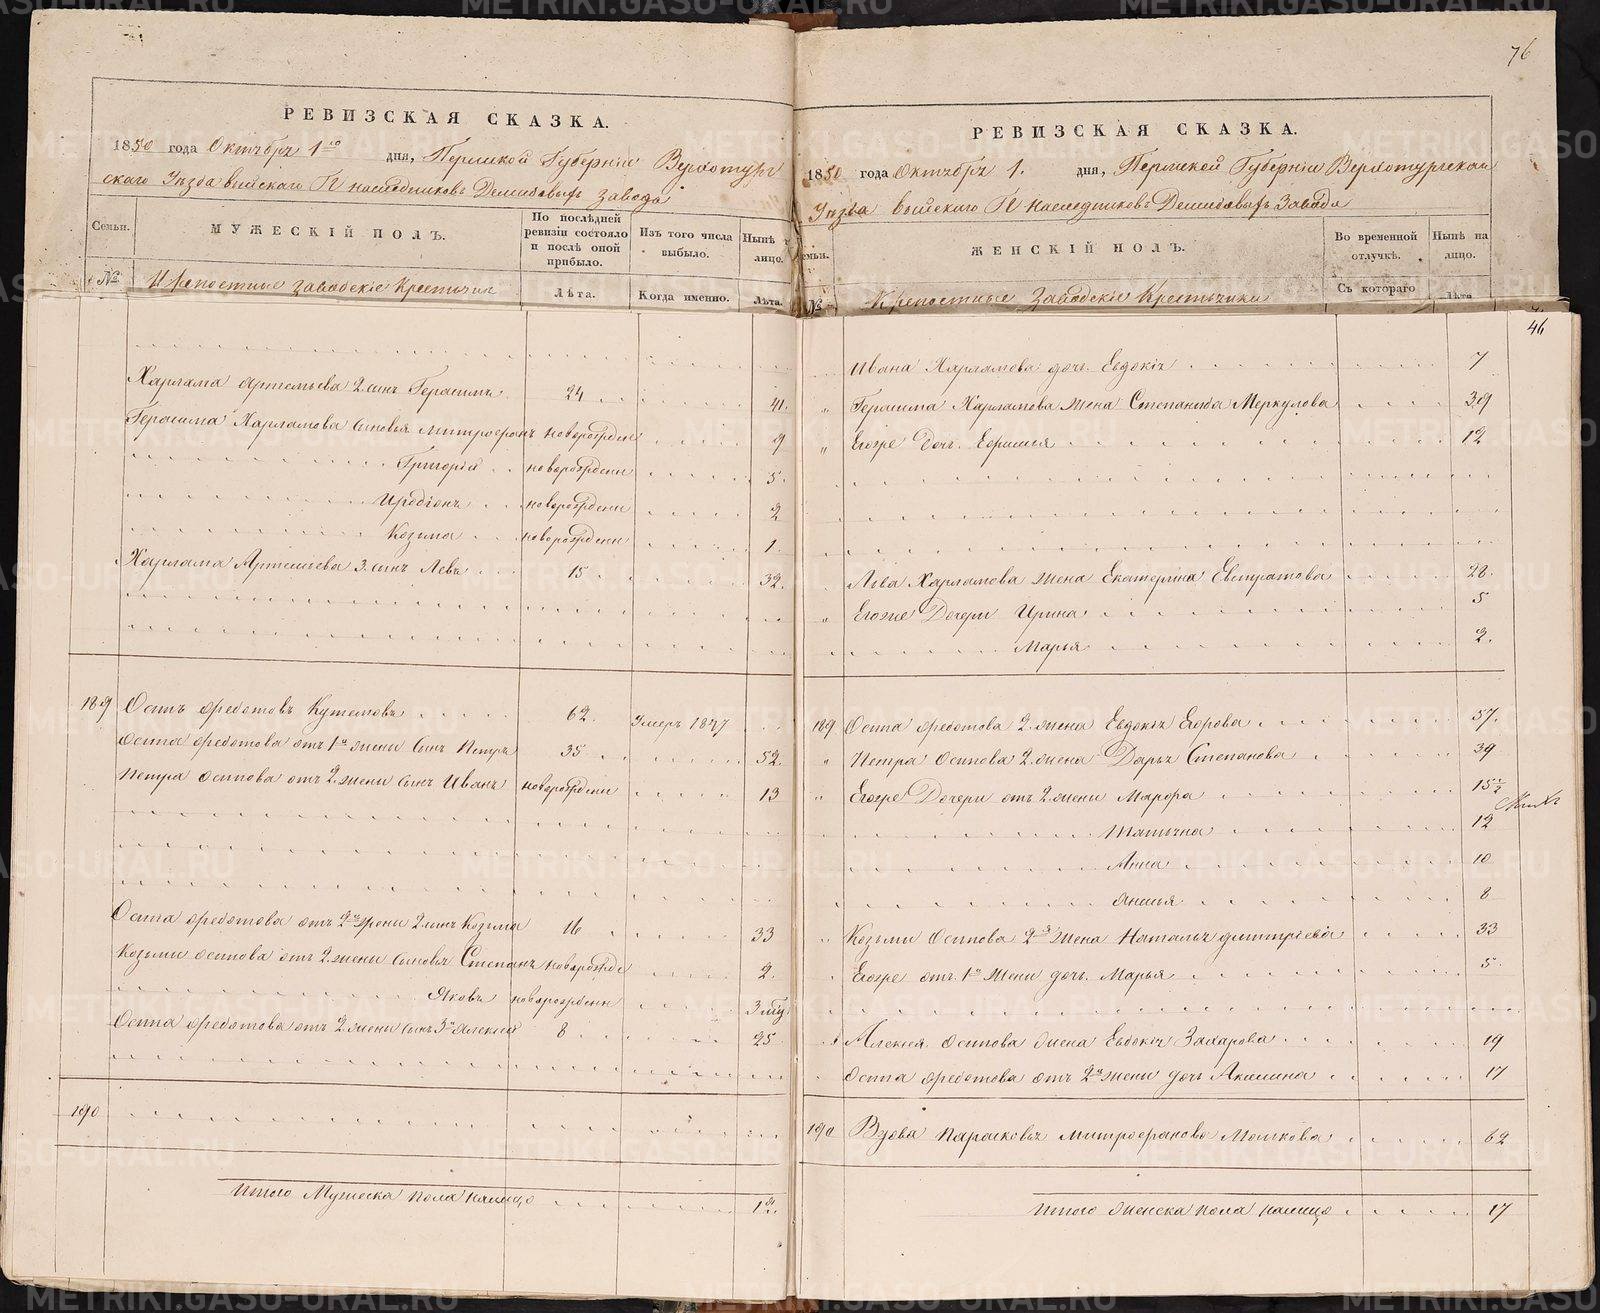 76
РЕВИЗСКАЯ СКАЗКА.
1850 года Октября 1го дня, Пермской Губернии Верхотур
скаго Уезда Выйскаго Гг наследников Демидовых завода
Семьи.
МУЖЕСКІЙ ПОЛЪ.
По послѣдней ревизіи состояло и послѣ оной прибыло.
Изъ того числа выбыло.
Нынѣ
лицо.
№
Крепостные заводскіе Крестьяне
Лѣта.
Когда именно.
Лѣта.
Харлама Артемьева 2 сынъ Герасимъ 24 41.
Герасима Харламова сыновья Митрофанъ новорожден 9
Григорій новорожденн 5.
Иродіонъ новорожденн 2
Козьма новорожденн 1.
Харлама Артемьева 3. сынъ Левъ 15 32.
189 Осипъ Федотовъ 62. Умеръ 1847
Осипа Федотова отъ 1й жены сынъ Петръ 35 52.
Петра Осипова отъ 2. жены сынъ Иванъ новорожденн 13
Осипа Федотова отъ 2й жены 2 сынъ Козьма 16 33
Козьмы Осипова отъ 2. жены сыновья Степанъ новорожде 2.
Яковъ новорожденн 3 мц.
Осипа Федотова отъ 2 жены сынъ 3й Алексей 8 25
190
Итого Мужеска пола налицо
РЕВИЗСКАЯ СКАЗКА.
1850 года Октября 1. дня, Пермской Губерніи Верхотурскаго
Уезда Выйскаго Гг наследниковъ Демидовыхъ Завода
емьи.
ЖЕНСКІЙ ПОЛЪ.
Во временной отлучкѣ.
Нынѣ на лицо.
№
Крепостные Заводскіе Крестьянки
Съ котораго
Лѣта
46
Ивана Харламова доч. Евдокія 7
Герасима Харламова жена Степанида Меркулова 39
Егоже Доч. Ефимья 12
Льва Харламова жена Екатерина Евстратова 28.
Егоже Дочери Ирина 5
Марья 2.
189 Осипа Федотова 2. жена Евдокія Егорова 57.
Петра Осипова 2. жена Дарья Степанова 39
Егоже Дочери отъ 2. жены Мавра 15 1/2
Татьяна 12
Анна 10
8
Козьмы Осипова 2я жена Наталья Дмитріева 33
Егоже отъ 1й жены доч. Марья 5.
Алексея Осипова жена Евдокія Захарова 19
Осипа Федотова отъ 2й жены дочь Акилина 17
190 Вдова Парасковья Митрофанова 62
Итого женска пола налицо 17
METRIKI.GASO-URAL.RU